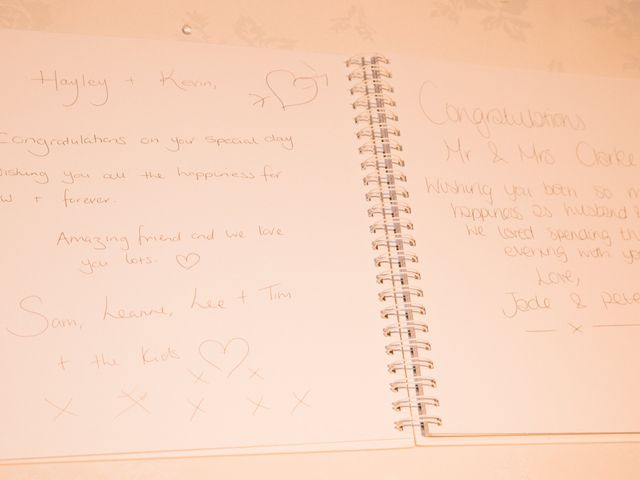 Hayley + Kevin,
Congratulations on your special day
Wishing you all the happiness for
now + forever.
Amazing friend and we love
you lots.
Sam, Leanne, Lee + Tim
+ the kids
x x
x x x x x
Congratulations
Mr & Mrs
Wishing you both so
happiness as husband &
we loved spending
evening with
Love,
Jade & Pete
x